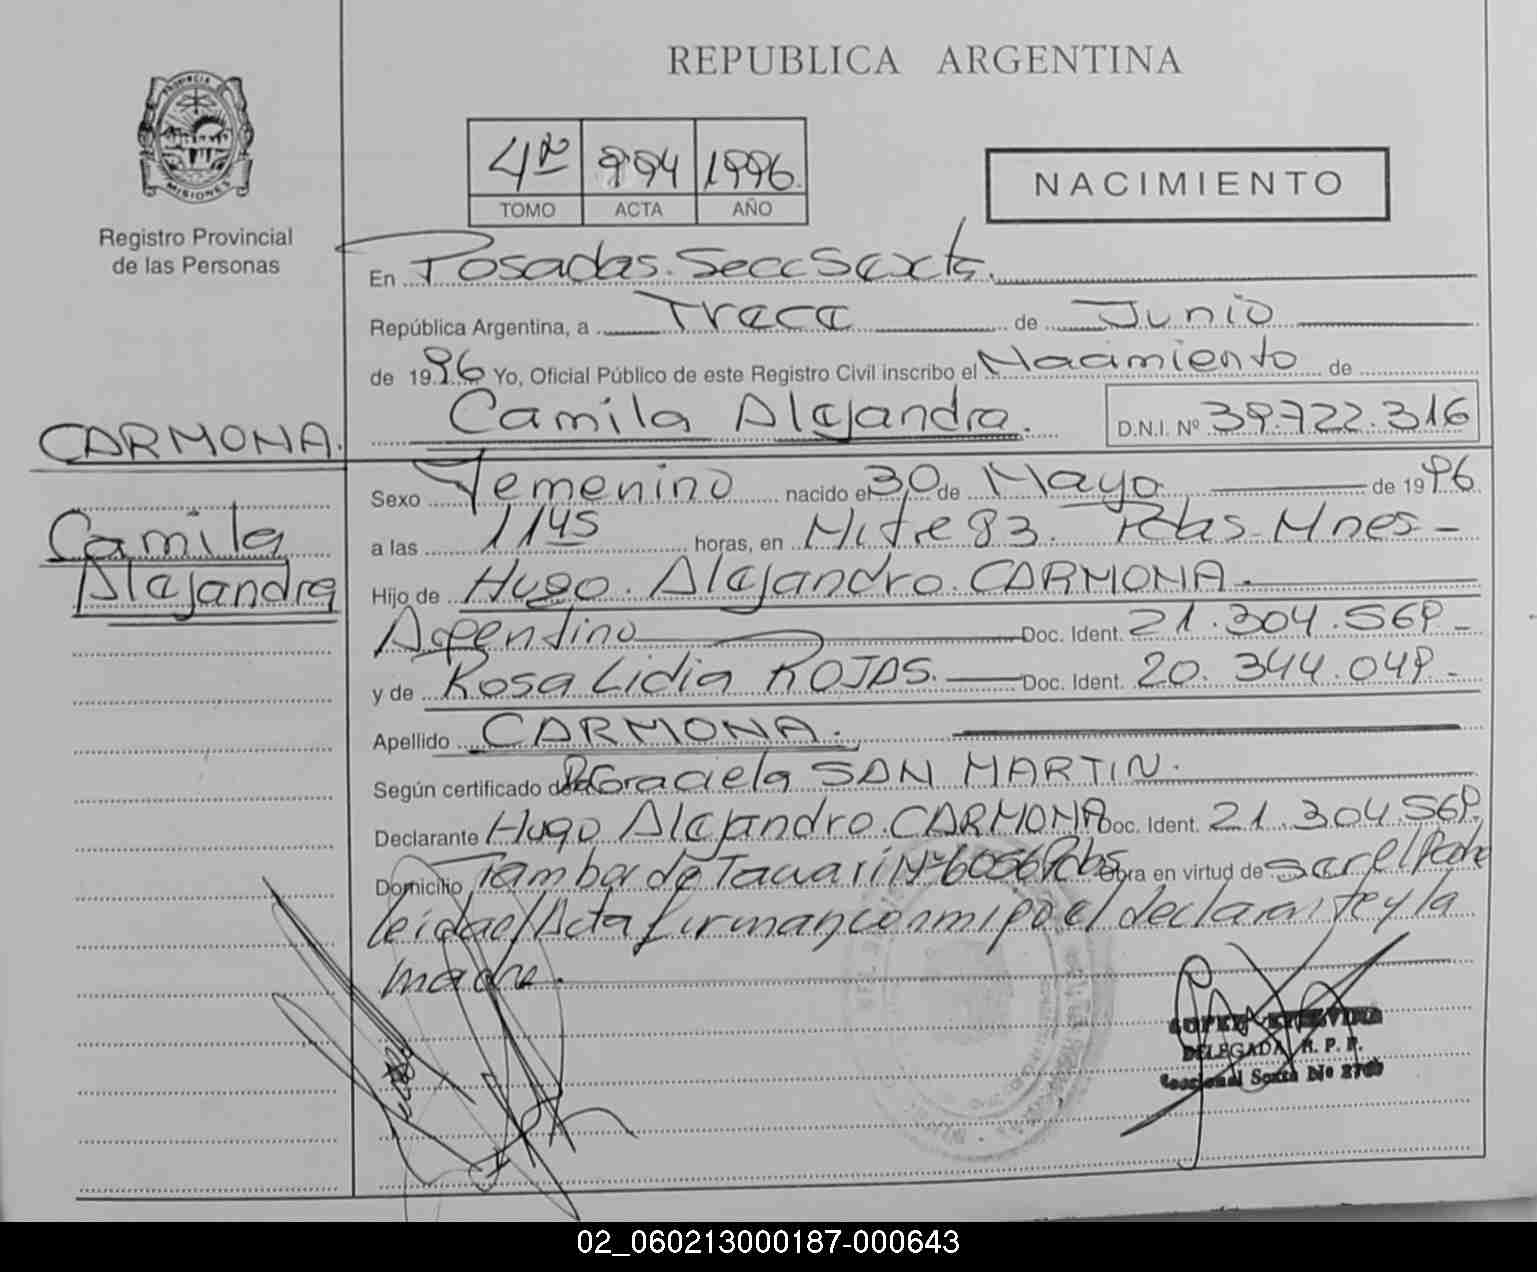 REPUBLICA ARGENTINA
PROVINCIA DE
MISIONES
Registro Provincial
de las Personas
4º 994 1996.
TOMO ACTA AÑO
NACIMIENTO
En Posadas. Secc Sexta.
República Argentina, a Trece de Junio
de 1996 Yo, Oficial Público de este Registro Civil inscribo el Nacimiento de
Camila Alejandra. D.N.I. Nº 39.722.316
CARMONA.
Camila
Alejandra
Sexo Femenino nacido el 30 de Mayo de 1996
a las 1145 horas, en Mitre 83. Pdas-Mnes-
Hijo de Hugo. Alejandro. CARMONA.
Argentino Doc. Ident. 21.304.569-
y de Rosa Lidia ROJAS. Doc. Ident. 20.344.049-
Apellido CARMONA.
Según certificado de Graciela SAN MARTIN.
Declarante Hugo Alejandro. CARMONA Doc. Ident. 21.304.569.
Domicilio Tambor de Tacuarí Nº 6056 Pdas Obra en virtud de ser el Padre
leída el Acta firman conmigo el declarante y la
madre.
DELEGADA R. P. P.
Seccional Sexta Nº
02_060213000187-000643